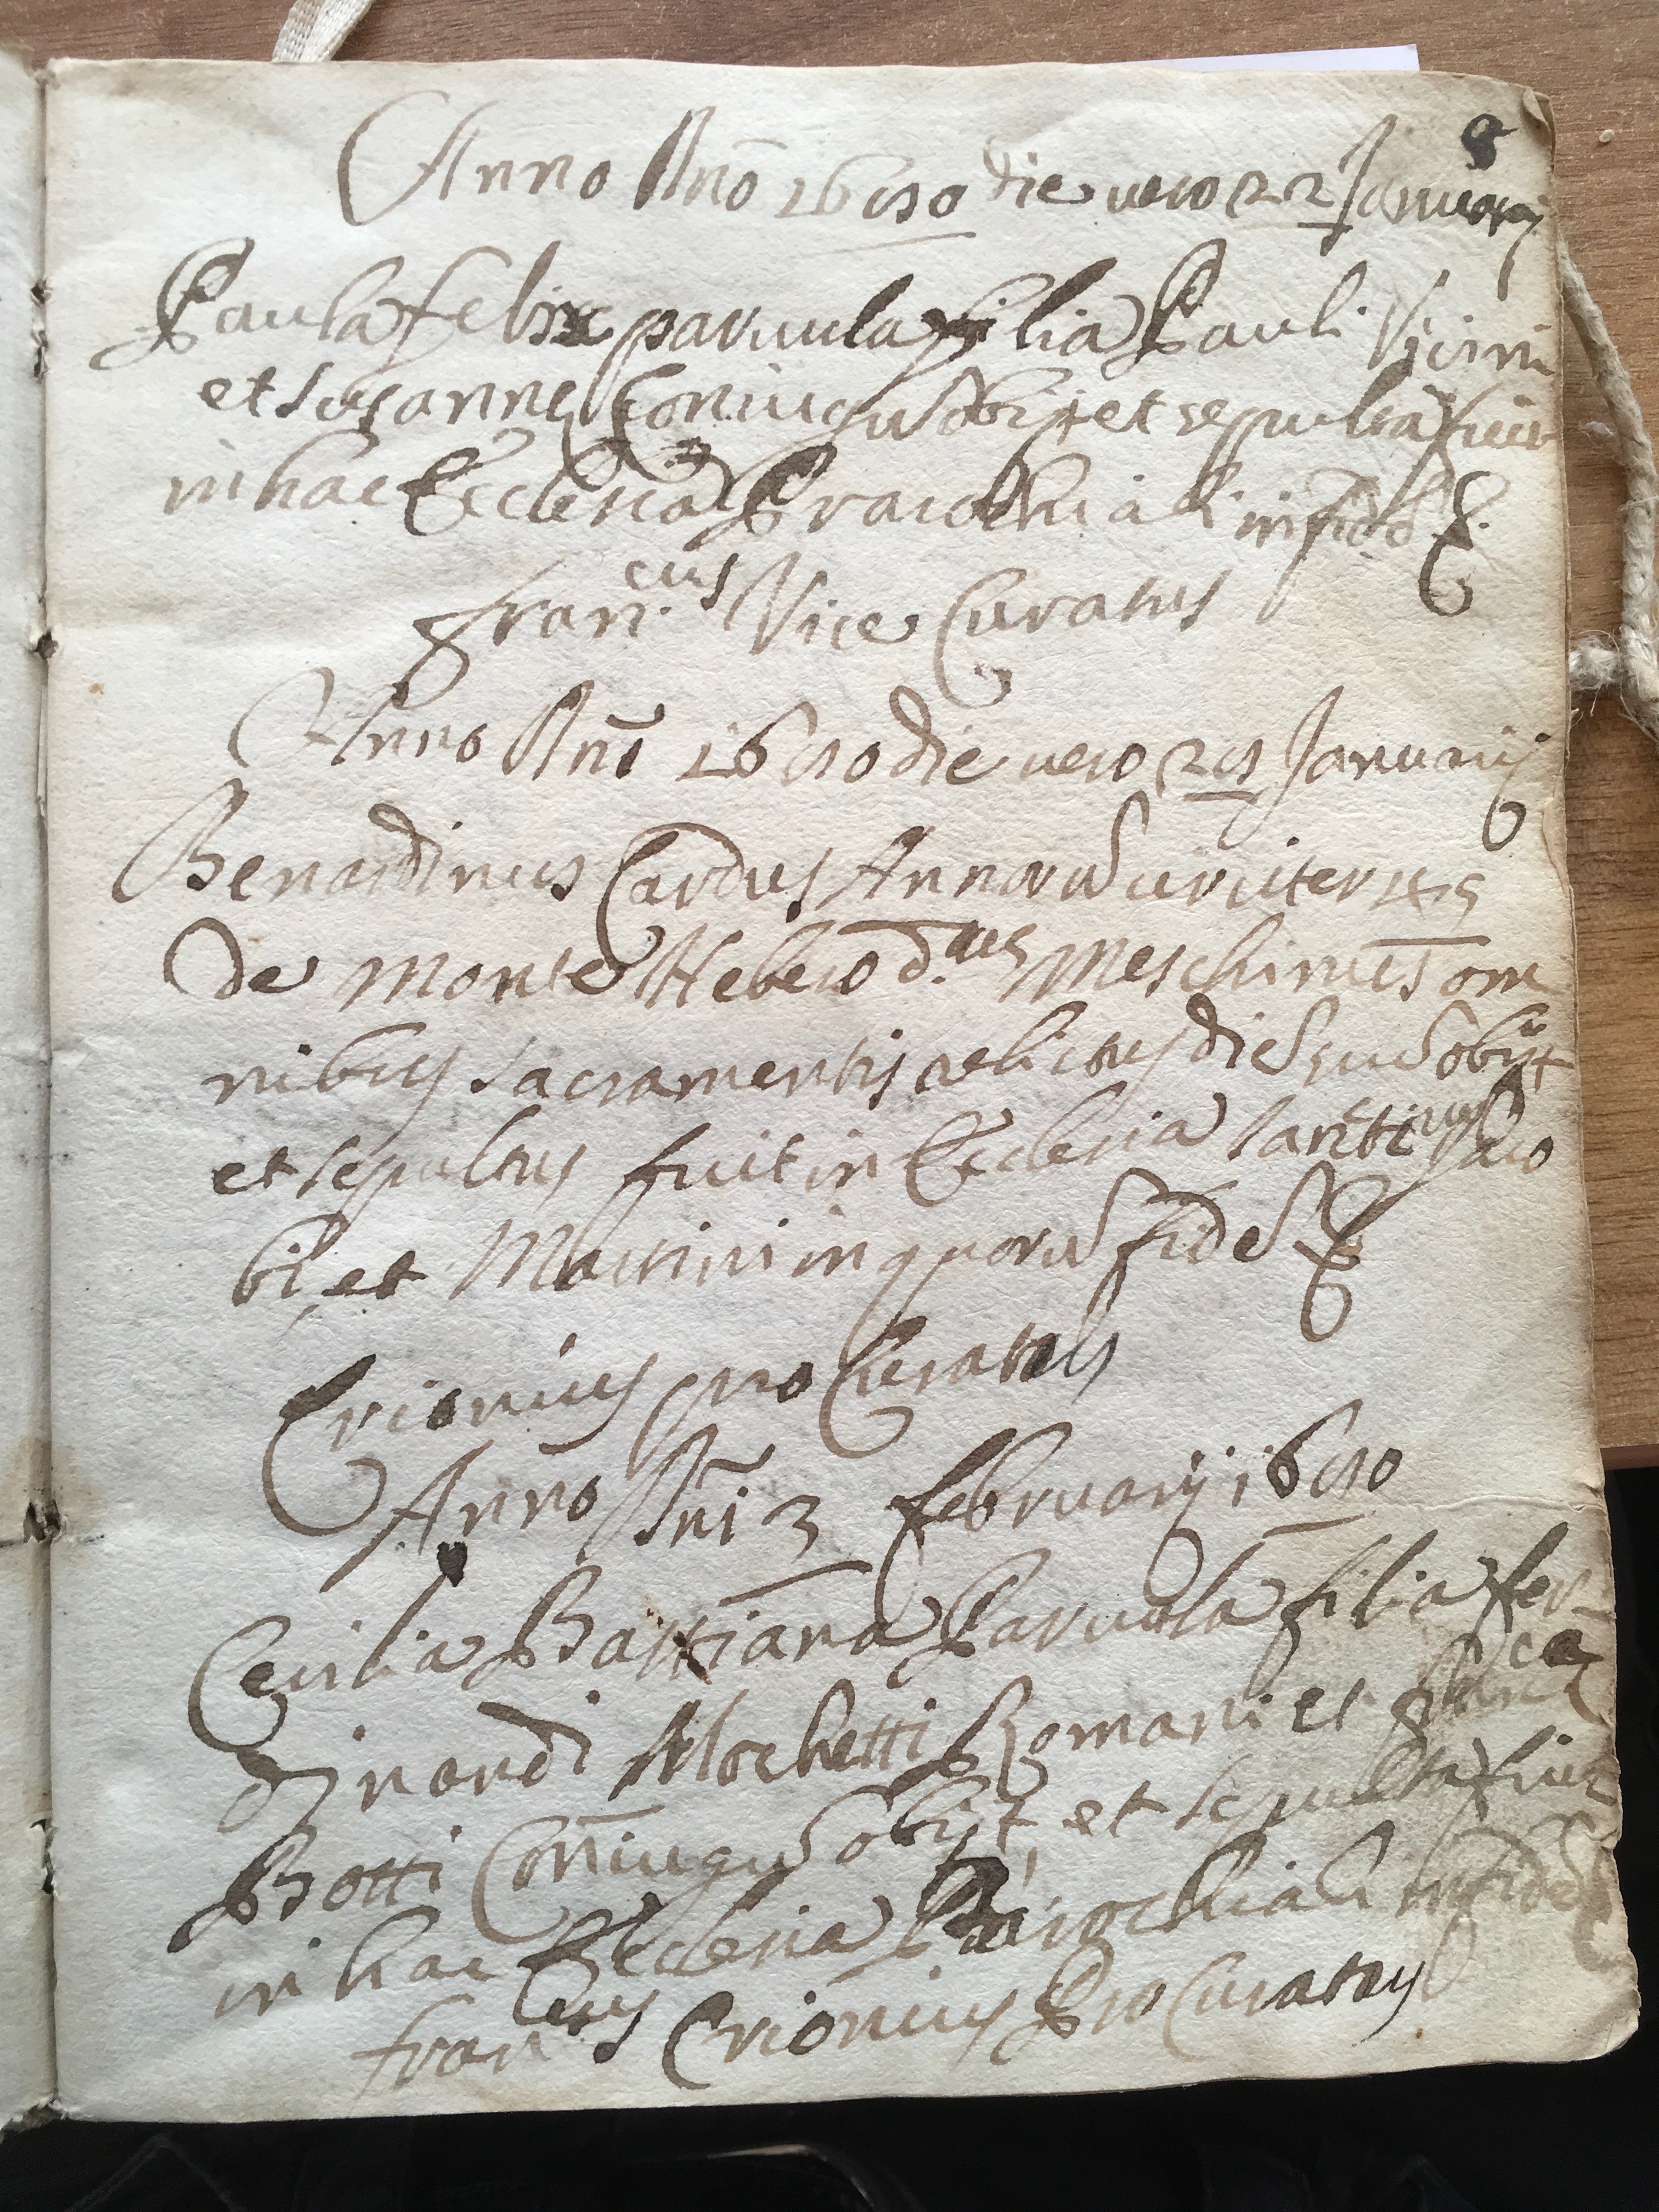 8
Anno Dnō 1650 die vero 22 Januarij
Paula felix parvula filia Pauli Vicini
et Susanne Coniugū obijt et sepulta fuit
in hac Ecclesia Parochiali in fidē &
Fran.cus Vice Curatus
Anno Dnī 1650 die vero 25 Januarij
Benardinus Cardus Annorū circiter 45
de Monte Hebero d.tus Meschinus om
nibus sacramentis relictus diē suū obijt
et sepultus fuit in Ecclesia Sanctorum Jaco
bi et Martini in quorū fidē &
Crionius pro Curatus
Anno Dnī 3 februarij 1650
Cecilia Bastiana Parvula filia fer
dinandi Mochetti Romani et
Botti Coniugū obijt, et sepulta fuit
in hac Ecclesia Parochiali in fidē &
Francus Crionius Pro Curatus